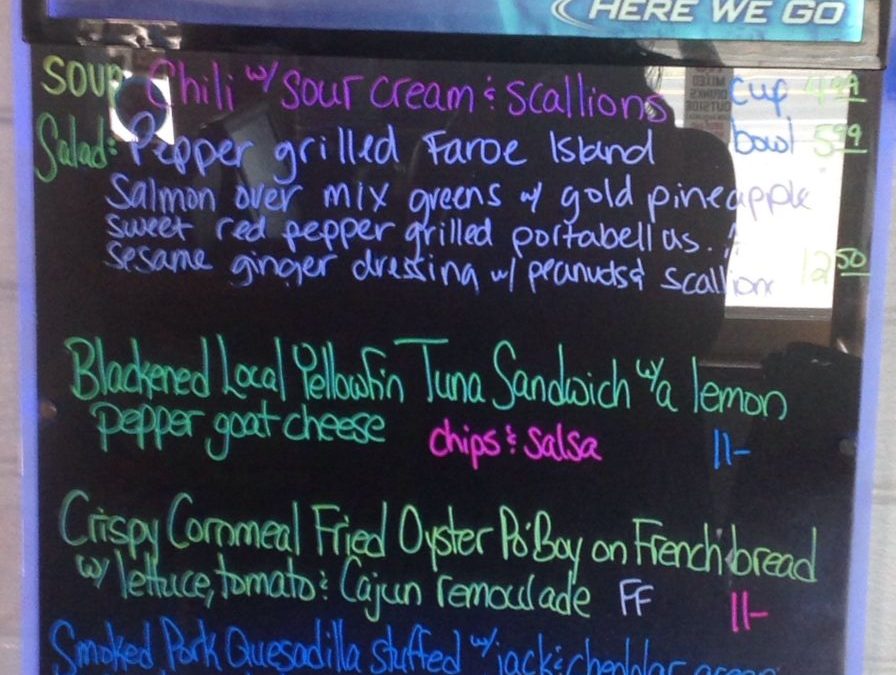 HERE WE GO
SOUP: Chili w/ sour cream & scallions cup 4.99
Salad: Pepper grilled Faroe Island bowl 5.99
Salmon over mix greens w/ gold pineapple
sweet red pepper grilled portabellas. &
sesame ginger dressing w/ peanuts & scallions 12.50
Blackened Local Yellowfin Tuna Sandwich w/ a lemon
pepper goat cheese chips & salsa 11-
Crispy Cornmeal Fried Oyster Po'Boy on French bread
w/ lettuce, tomato & Cajun remoulade FF 11-
Smoked Pork Quesadilla stuffed w/ jack & cheddar, green